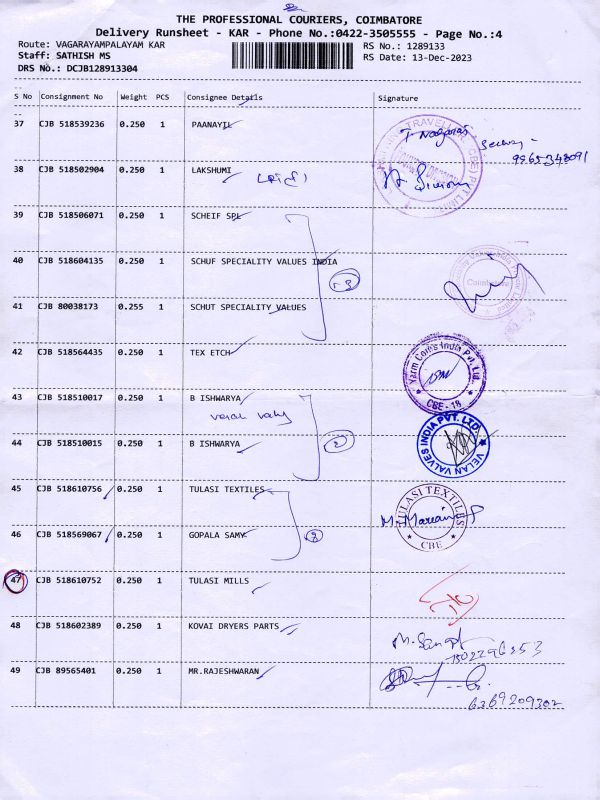 THE PROFESSIONAL COURIERS, COIMBATORE
Delivery Runsheet - KAR - Phone No.:0422-3505555 - Page No.:4
Route: VAGARAYAMPALAYAM KAR
RS No.: 1289133
Staff: SATHISH MS
RS Date: 13-Dec-2023
DRS No.: DCJB128913304
S No Consignment No Weight PCS Consignee Details Signature
37 CJB 518539236 0.250 1 PAANAYIL
9965343091
38 CJB 518502904 0.250 1 LAKSHUMI
39 CJB 518506071 0.250 1 SCHEIF SPL
40 CJB 518604135 0.250 1 SCHUF SPECIALITY VALUES INDIA
Coimbatore
41 CJB 80038173 0.255 1 SCHUT SPECIALITY VALUES
42 CJB 518564435 0.250 1 TEX ETCH
Yarm Corbs India Pvt. Ltd.
CBE - 18
43 CJB 518510017 0.250 1 B ISHWARYA
44 CJB 518510015 0.250 1 B ISHWARYA
2
VELAN VALVES INDIA PVT. LTD.
45 CJB 518610756 0.250 1 TULASI TEXTILES
TULASI TEXTILES
CBE
46 CJB 518569067 0.250 1 GOPALA SAMY
47 CJB 518610752 0.250 1 TULASI MILLS
48 CJB 518602389 0.250 1 KOVAI DRYERS PARTS
49 CJB 89565401 0.250 1 MR.RAJESHWARAN
6369209302